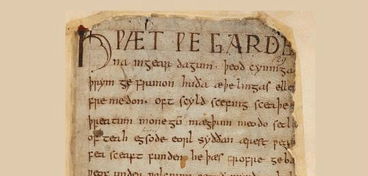 HǷÆT ǷE GARDE
na ingear dagum. þeod cyninga
þrym ge frunon huða æþelingas elle
fre medon. oft scyld scefing sceaþe
þreatum monegū mægþum meodo setl
of teah egsode eorl syððan ærest ƿea
fea sceaft funden he þæs frofre geba
ƿeox under